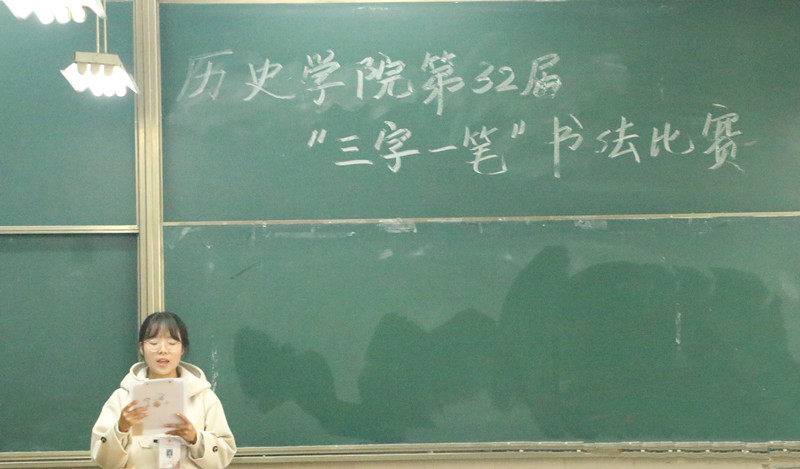 历史学院第32届
"三字一笔"书法比赛